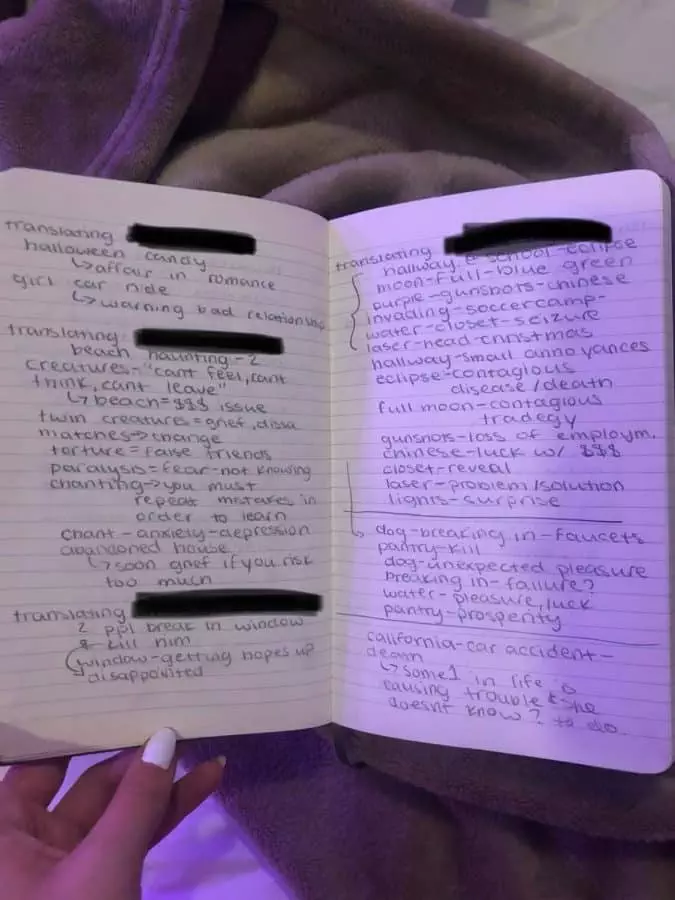 translating
halloween candy
↳affair in romance
girl car ride
↳warning bad relationship
translating
beach haunting-2
creatures-"cant feel, cant
think, cant leave"
↳beach=$$$ issue
twin creatures=grief, dissa
matches->change
torture=false friends
paralysis=fear-not knowing
chanting->you must
repeat mistakes in
order to learn
chant-anxiety-depression
abandoned house
↳soon grief if you risk
too much
translating
2 ppl break in window
& kill him
window-getting hopes up
disappointed
translating
hallway @ school-eclipse
moon-full-blue green
purple-gunshots-chinese
invading-soccercamp-
water-closet-seizure
laser-head-christmas
hallway-small annoyances
eclipse-contagious
disease/death
full moon-contagious
tradegy
gunshots-loss of employm.
chinese-luck w/ $$$
closet-reveal
laser-problem/solution
lights-surprise
dog-breaking in-faucets
pantry-kill
dog-unexpected pleasure
breaking in-failure?
water-pleasure, luck
pantry-prosperity
california-car accident-
death
↳some1 in life is
causing trouble & she
doesnt know ? to do.